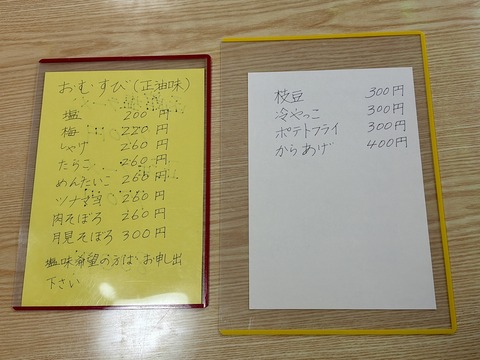 おむすび(正油味)
塩 200円
梅 220円
しゃけ 260円
たらこ 260円
めんたいこ 260円
ツナマヨ 260円
肉そぼろ 260円
月見そぼろ 300円
塩味希望の方は、お申し出
下さい
枝豆 300円
冷やっこ 300円
ポテトフライ 300円
からあげ 400円